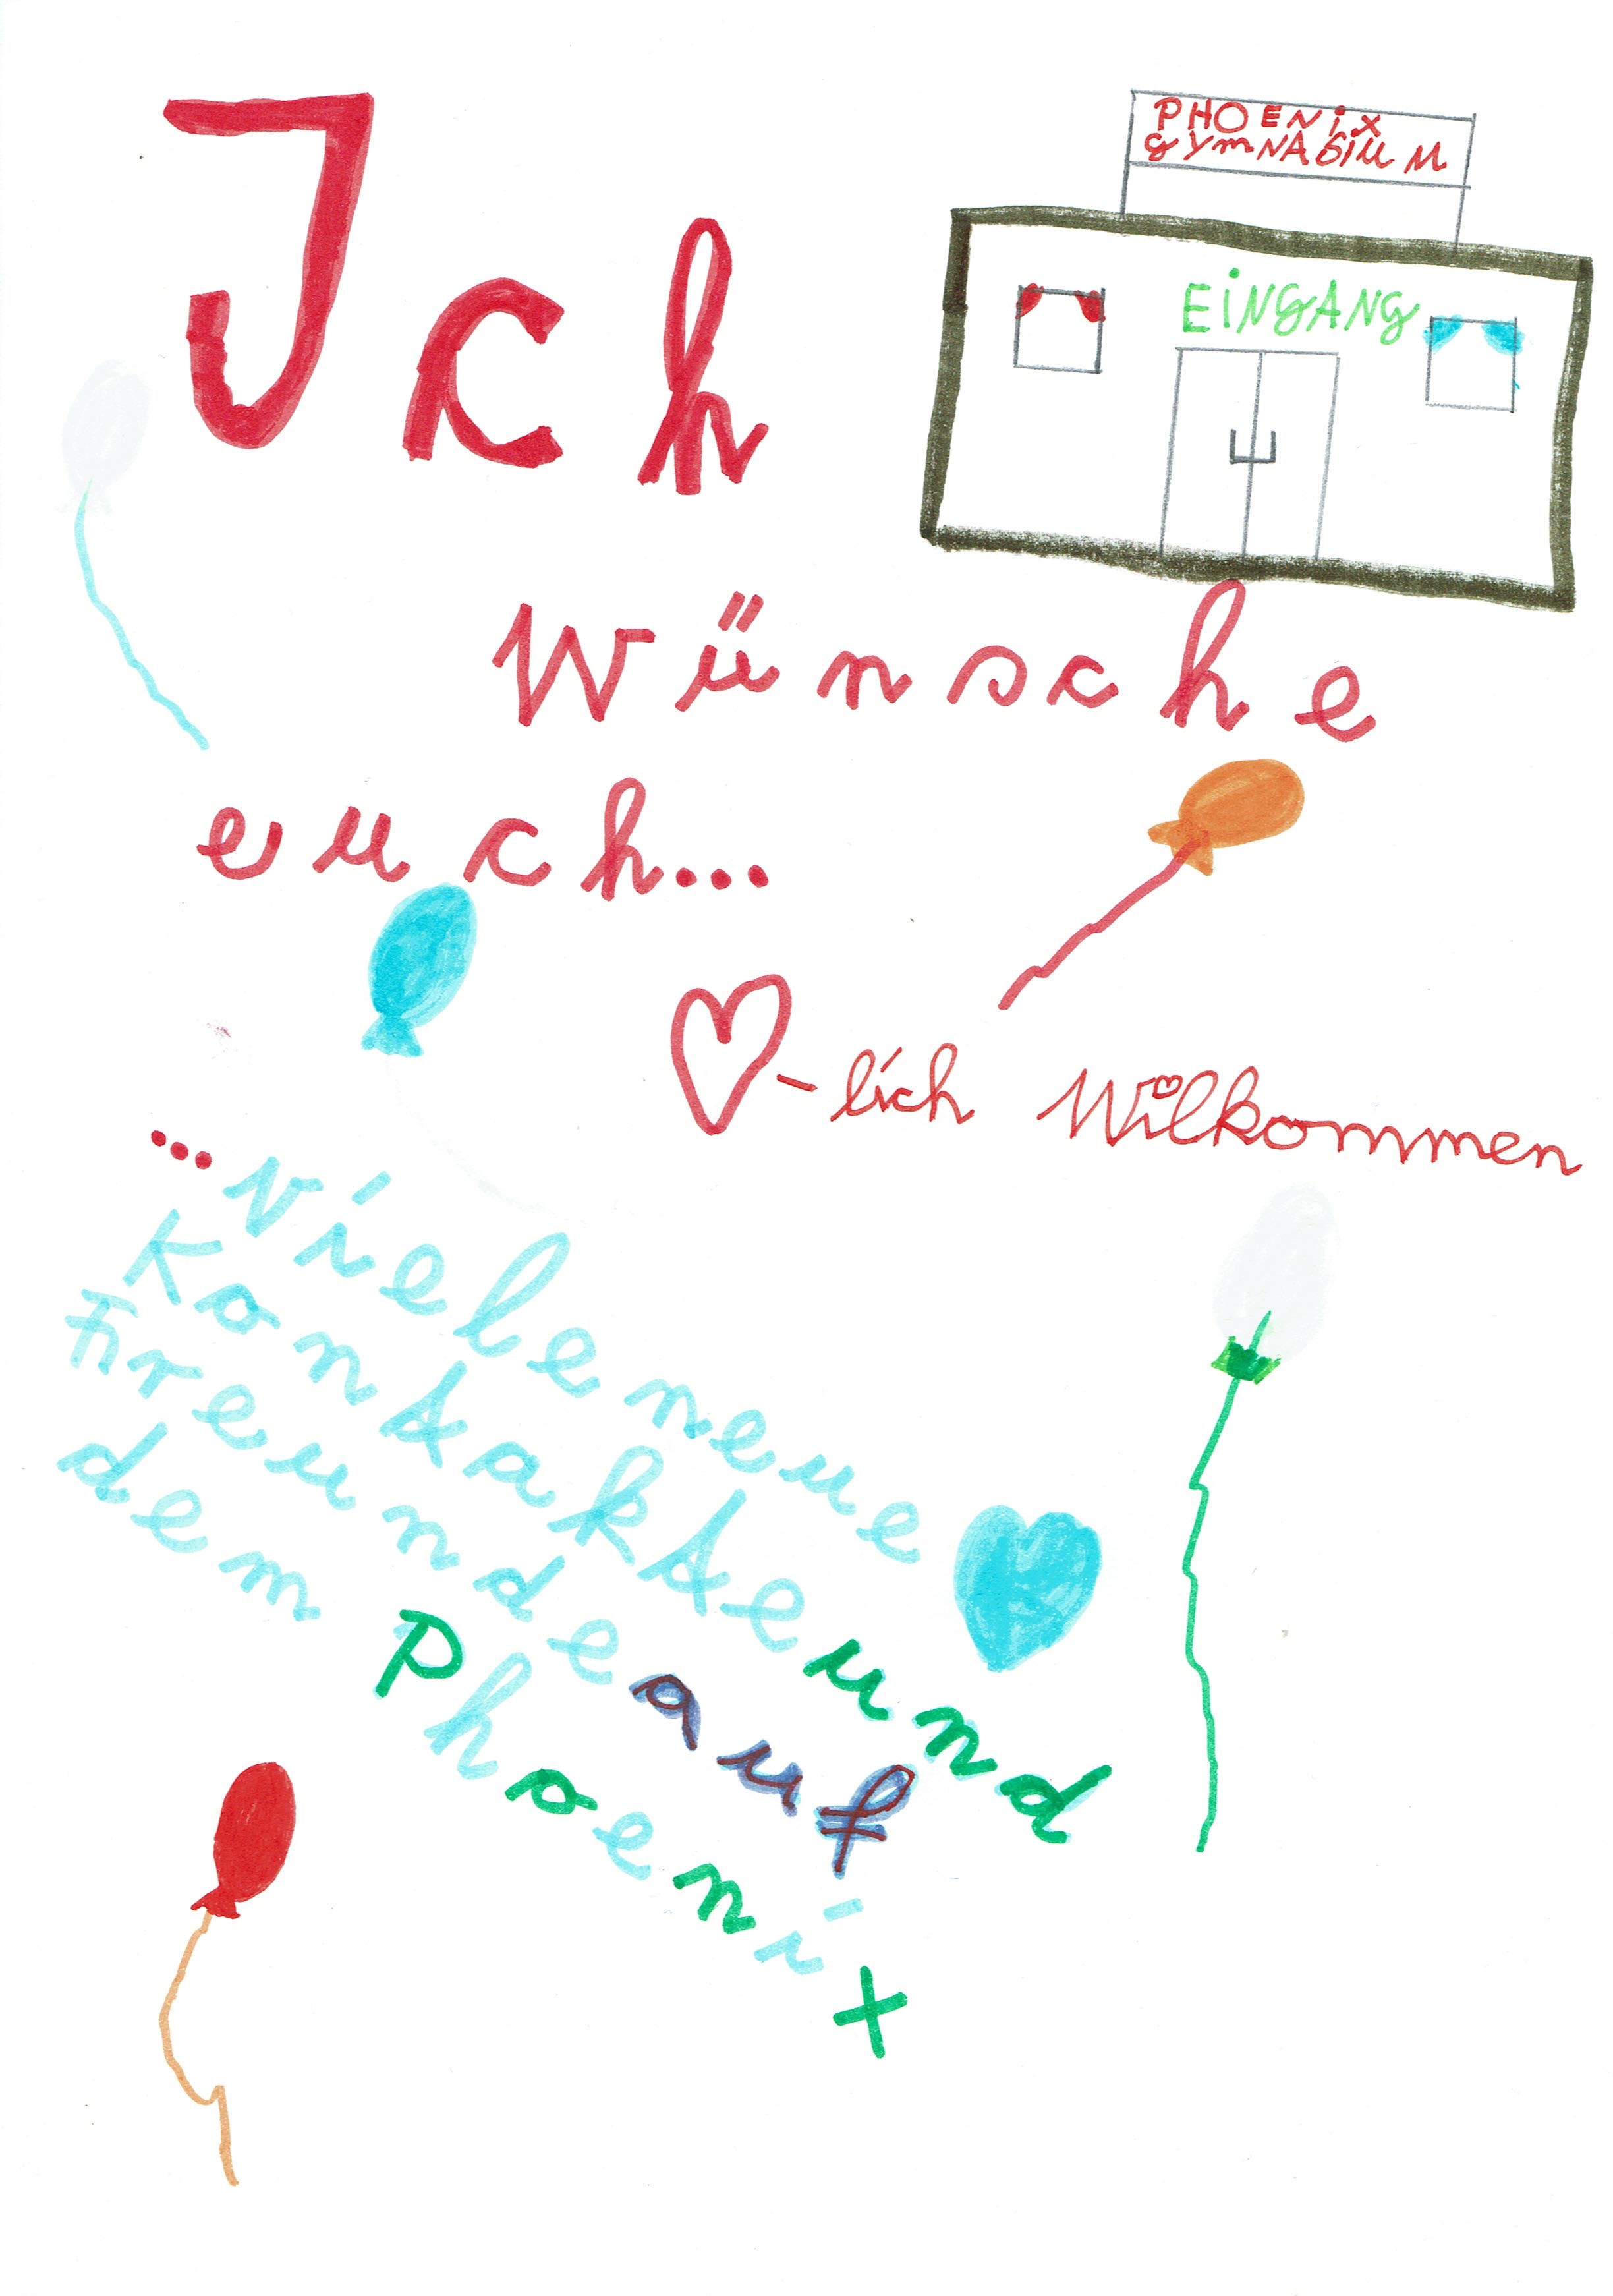 PHOENiX
GYMNASiUM
EiNGANG
Ich
Wünsche
euch...
-lich Wilkommen
...viele neue
Kontakte und
Freunde auf
dem Phoenix